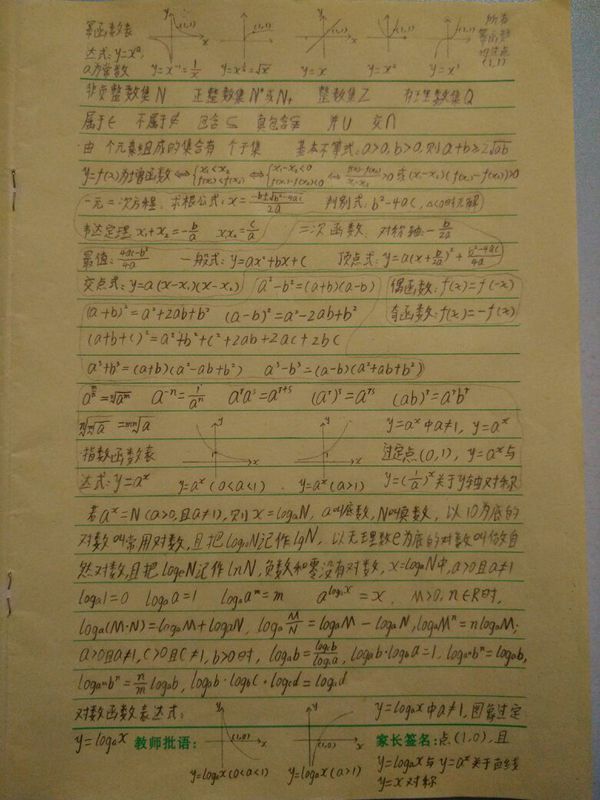 幂函数表 (1,1) (1,1) (1,1) 所有
达式:y=xᵃ, 幂函数
a为常数 y=x⁻¹=1/x y=x^½=√x y=x y=x² y=x³ (1,1)
非负整数集N 正整数集N*或N₊ 整数集Z 有理数集Q
属于∈ 不属于∉ 包含⊆ 真包含⊊ 并∪ 交∩
由 个元素组成的集合有 个子集 基本不等式:a>0,b>0,则a+b≥2√ab
y=f(x)为增函数⇔{x₁<x₂ f(x₁)<f(x₂)⇔{x₁-x₂<0 f(x₁)-f(x₂)<0⇔ >0或(x₁-x₂)(f(x₁)-f(x₂))>0
一元二次方程:求根公式:x=(-b±√b²-4ac)/2a 判别式:b²-4ac,△<0时无解
韦达定理x₁+x₂=-b/a x₁x₂=c/a 二次函数:对称轴:-b/2a
最值:(4ac-b²)/4a 一般式:y=ax²+bx+c 顶点式:y=a(x+b/2a)²+
交点式:y=a(x-x₁)(x-x₂) a²-b²=(a+b)(a-b) 偶函数:f(x)=f(-x)
(a+b)²=a²+2ab+b² (a-b)²=a²-2ab+b² 奇函数:f(x)=-f(x)
(a+b+c)²=a²+b²+c²+2ab+2ac+2bc
a³+b³=(a+b)(a²-ab+b²) a³-b³=(a-b)(a²+ab+b²)
a^(m/n)=ⁿ√aᵐ a⁻ⁿ=1/aⁿ aʳaˢ=aʳ⁺ˢ (aʳ)ˢ=aʳˢ (ab)ʳ=aʳbʳ
ᵐ√ⁿ√a=ᵐⁿ√a y y y=aˣ中a≠1,y=aˣ
指数函数表 x x 过定点(0,1),y=aˣ与
达式:y=aˣ y=aˣ(0<a<1) y=aˣ(a>1) y=(1/a)ˣ关于y轴对称
若aˣ=N(a>0,且a≠1),则x=logₐN,a叫底数,N叫真数,以10为底的
对数叫常用对数,且把log₁₀N记作lgN,以无理数e为底的对数叫做自
然对数,且把logₑN记作lnN,负数和零没有对数,x=logₐN中,a>0且a≠1
logₐ1=0 logₐa=1 logₐaᵐ=m a^(logₐx)=x. M>0,n∈R时,
logₐ(M·N)=logₐM+logₐN,logₐM/N=logₐM-logₐN,logₐMⁿ=nlogₐM,
a>0且a≠1,c>0且c≠1,b>0时,logₐb=log꜀b/log꜀a,logₐb·log_b a=1,logₐⁿbⁿ=logₐb,
logₐᵐbⁿ=n/m logₐb,logₐb·log_b c·log꜀d=logₐd
对数函数表达式: y y y=logₐx中a≠1,图象过定
y=logₐx 教师批语: (1,0) x (1,0) x 家长签名:点(1,0),且
y=logₐx(0<a<1) y=logₐx(a>1) y=logₐx与y=aˣ关于直线
y=x对称